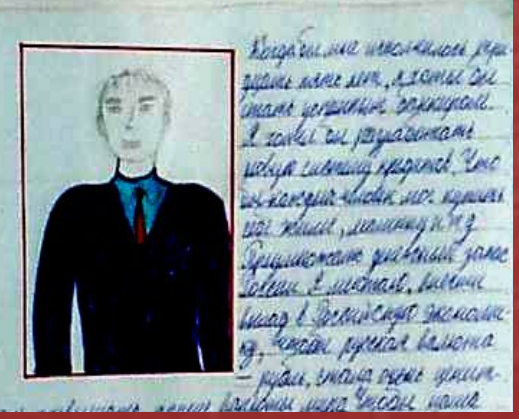 Когда бы мне исполнилось трид-
цать пять лет, я хотел бы
стать успешным банкиром.
Я хотел бы разработать
новую систему кредитов. Что
бы каждый человек мог купить
свое жильё, машину и т д
Приумножать денежный запас
России. Я мечтаю, внести
вклад в Российскую экономи-
ку, чтобы русская валюта
– рубль, стала очень ценит-
валюты мира Чтобы наша